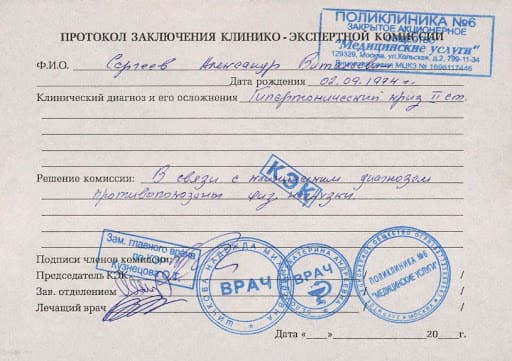 ПОЛИКЛИНИКА №6
ЗАКРЫТОЕ АКЦИОНЕРНОЕ
ОБЩЕСТВО
"Медицинские услуги"
129329, Москва, ул.Кольская, д.2. 799-11-34
МЦКЗ № 1698117446
ПРОТОКОЛ ЗАКЛЮЧЕНИЯ КЛИНИКО - ЭКСПЕРТНОЙ КОМИССИИ
Ф.И.О. Сергеев Александр
Дата рождения 02.09.1974 г.
Клинический диагноз и его осложнения Гипертонический криз II ст.
Решение комиссии: В связи с клиническим диагнозом
противопоказаны физ. нагрузки.
КЭК
Зам. главного врача
по КЭР
Кузнецова
Подписи членов комиссии:
Председатель КЭК
Зав. отделением / /
Лечащий врач / /
ШИЧКОВА НАДЕЖДА
ВРАЧ
ЕКАТЕРИНА АНДРЕЕВНА
ВРАЧ
ПОЛИКЛИНИКА №6
"МЕДИЦИНСКИЕ УСЛУГИ"
МОСКВА
Дата «____»____________20____г.